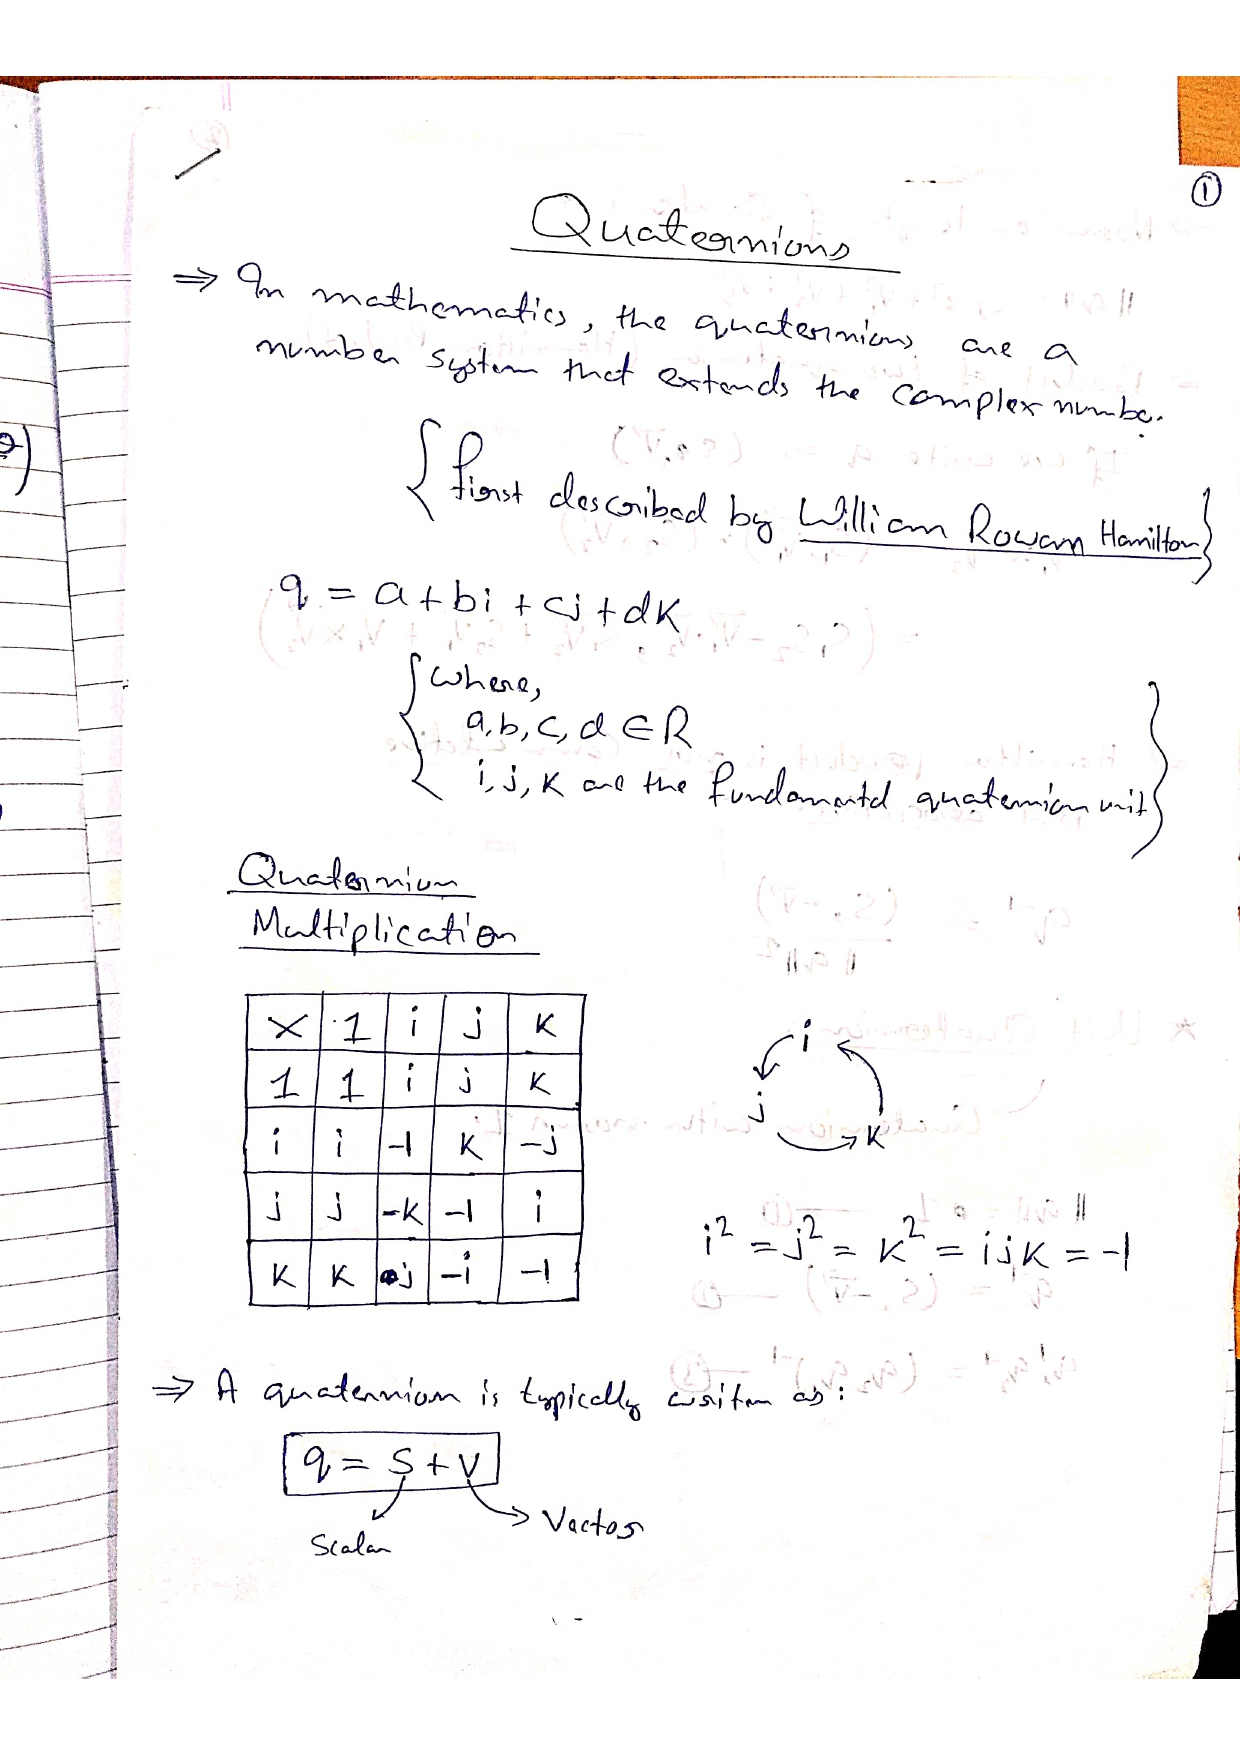 ①
Quaternions
⇒ In mathematics, the quaternions are a
number system that extends the complex numbe.
{first described by William Rowan Hamilton}
q = a + bi + cj + dk
{where,
a, b, c, d ∈ R
i, j, k are the fundamental quaternion unit}
Quaternion
Multiplication
× 1 i j k
1 1 i j k
i i -1 k -j
j j -k -1 i
k k j -i -1
i
j
k
i² = j² = k² = ijk = -1
⇒ A quaternion is typically written as:
q = S + V
Scalar
Vector